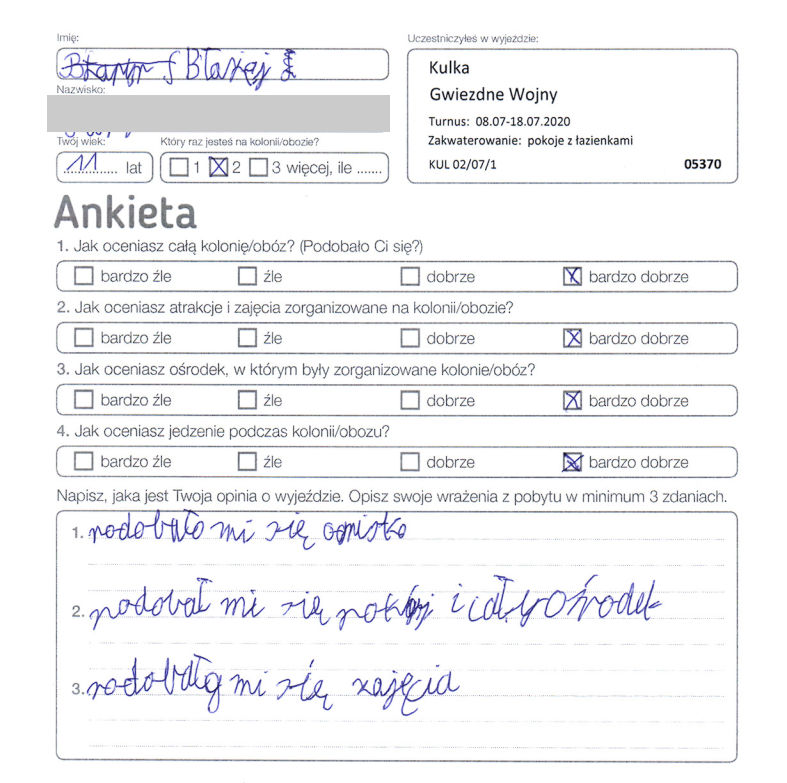 Imię:
Błażej
Nazwisko:
Twój wiek:
11 lat
Który raz jesteś na kolonii/obozie?
1 2 3 więcej, ile .......
Uczestniczyłeś w wyjeździe:
Kulka
Gwiezdne Wojny
Turnus: 08.07-18.07.2020
Zakwaterowanie: pokoje z łazienkami
KUL 02/07/1 05370
Ankieta
1. Jak oceniasz całą kolonię/obóz? (Podobało Ci się?)
bardzo źle źle dobrze bardzo dobrze
2. Jak oceniasz atrakcje i zajęcia zorganizowane na kolonii/obozie?
bardzo źle źle dobrze bardzo dobrze
3. Jak oceniasz ośrodek, w którym były zorganizowane kolonie/obóz?
bardzo źle źle dobrze bardzo dobrze
4. Jak oceniasz jedzenie podczas kolonii/obozu?
bardzo źle źle dobrze bardzo dobrze
Napisz, jaka jest Twoja opinia o wyjeździe. Opisz swoje wrażenia z pobytu w minimum 3 zdaniach.
1. podobało mi się ognisko
2. podobał mi się pokój i cały ośrodek
3. podobały mi się zajęcia